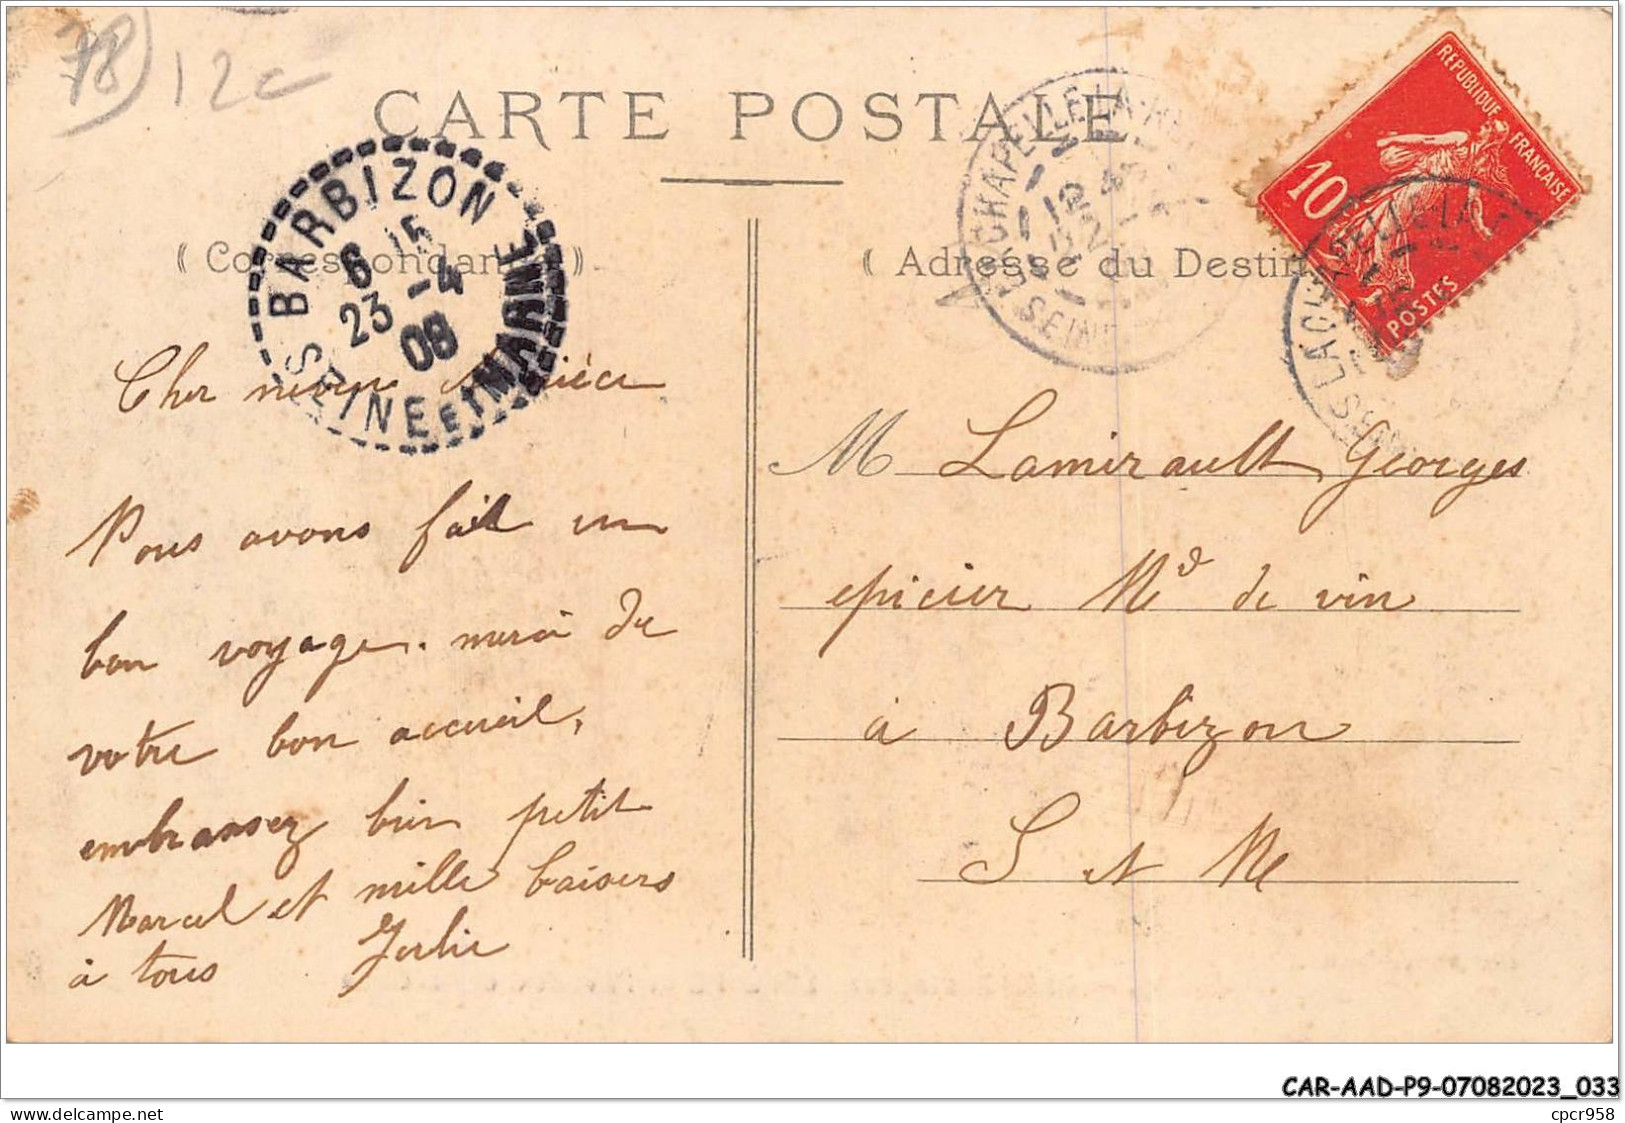 78
12c
CARTE POSTALE
BARBIZON
6 15
23 -4
09
SEINE ET MARNE
LA CHAPELLE-LA-
SEINE
RÉPUBLIQUE FRANÇAISE
10
POSTES
( Adresse du Destin
Cher neveu nièce
Nous avons fait un
bon voyage. merci de
votre bon accueil,
embrassez bien petit
Marcel et mille baisers
à tous Julie
M Lamirault Georges
epicier Md de vin
à Barbizon
S et M
CAR-AAD-P9-07082023_033
delcampe.net
cpcr958